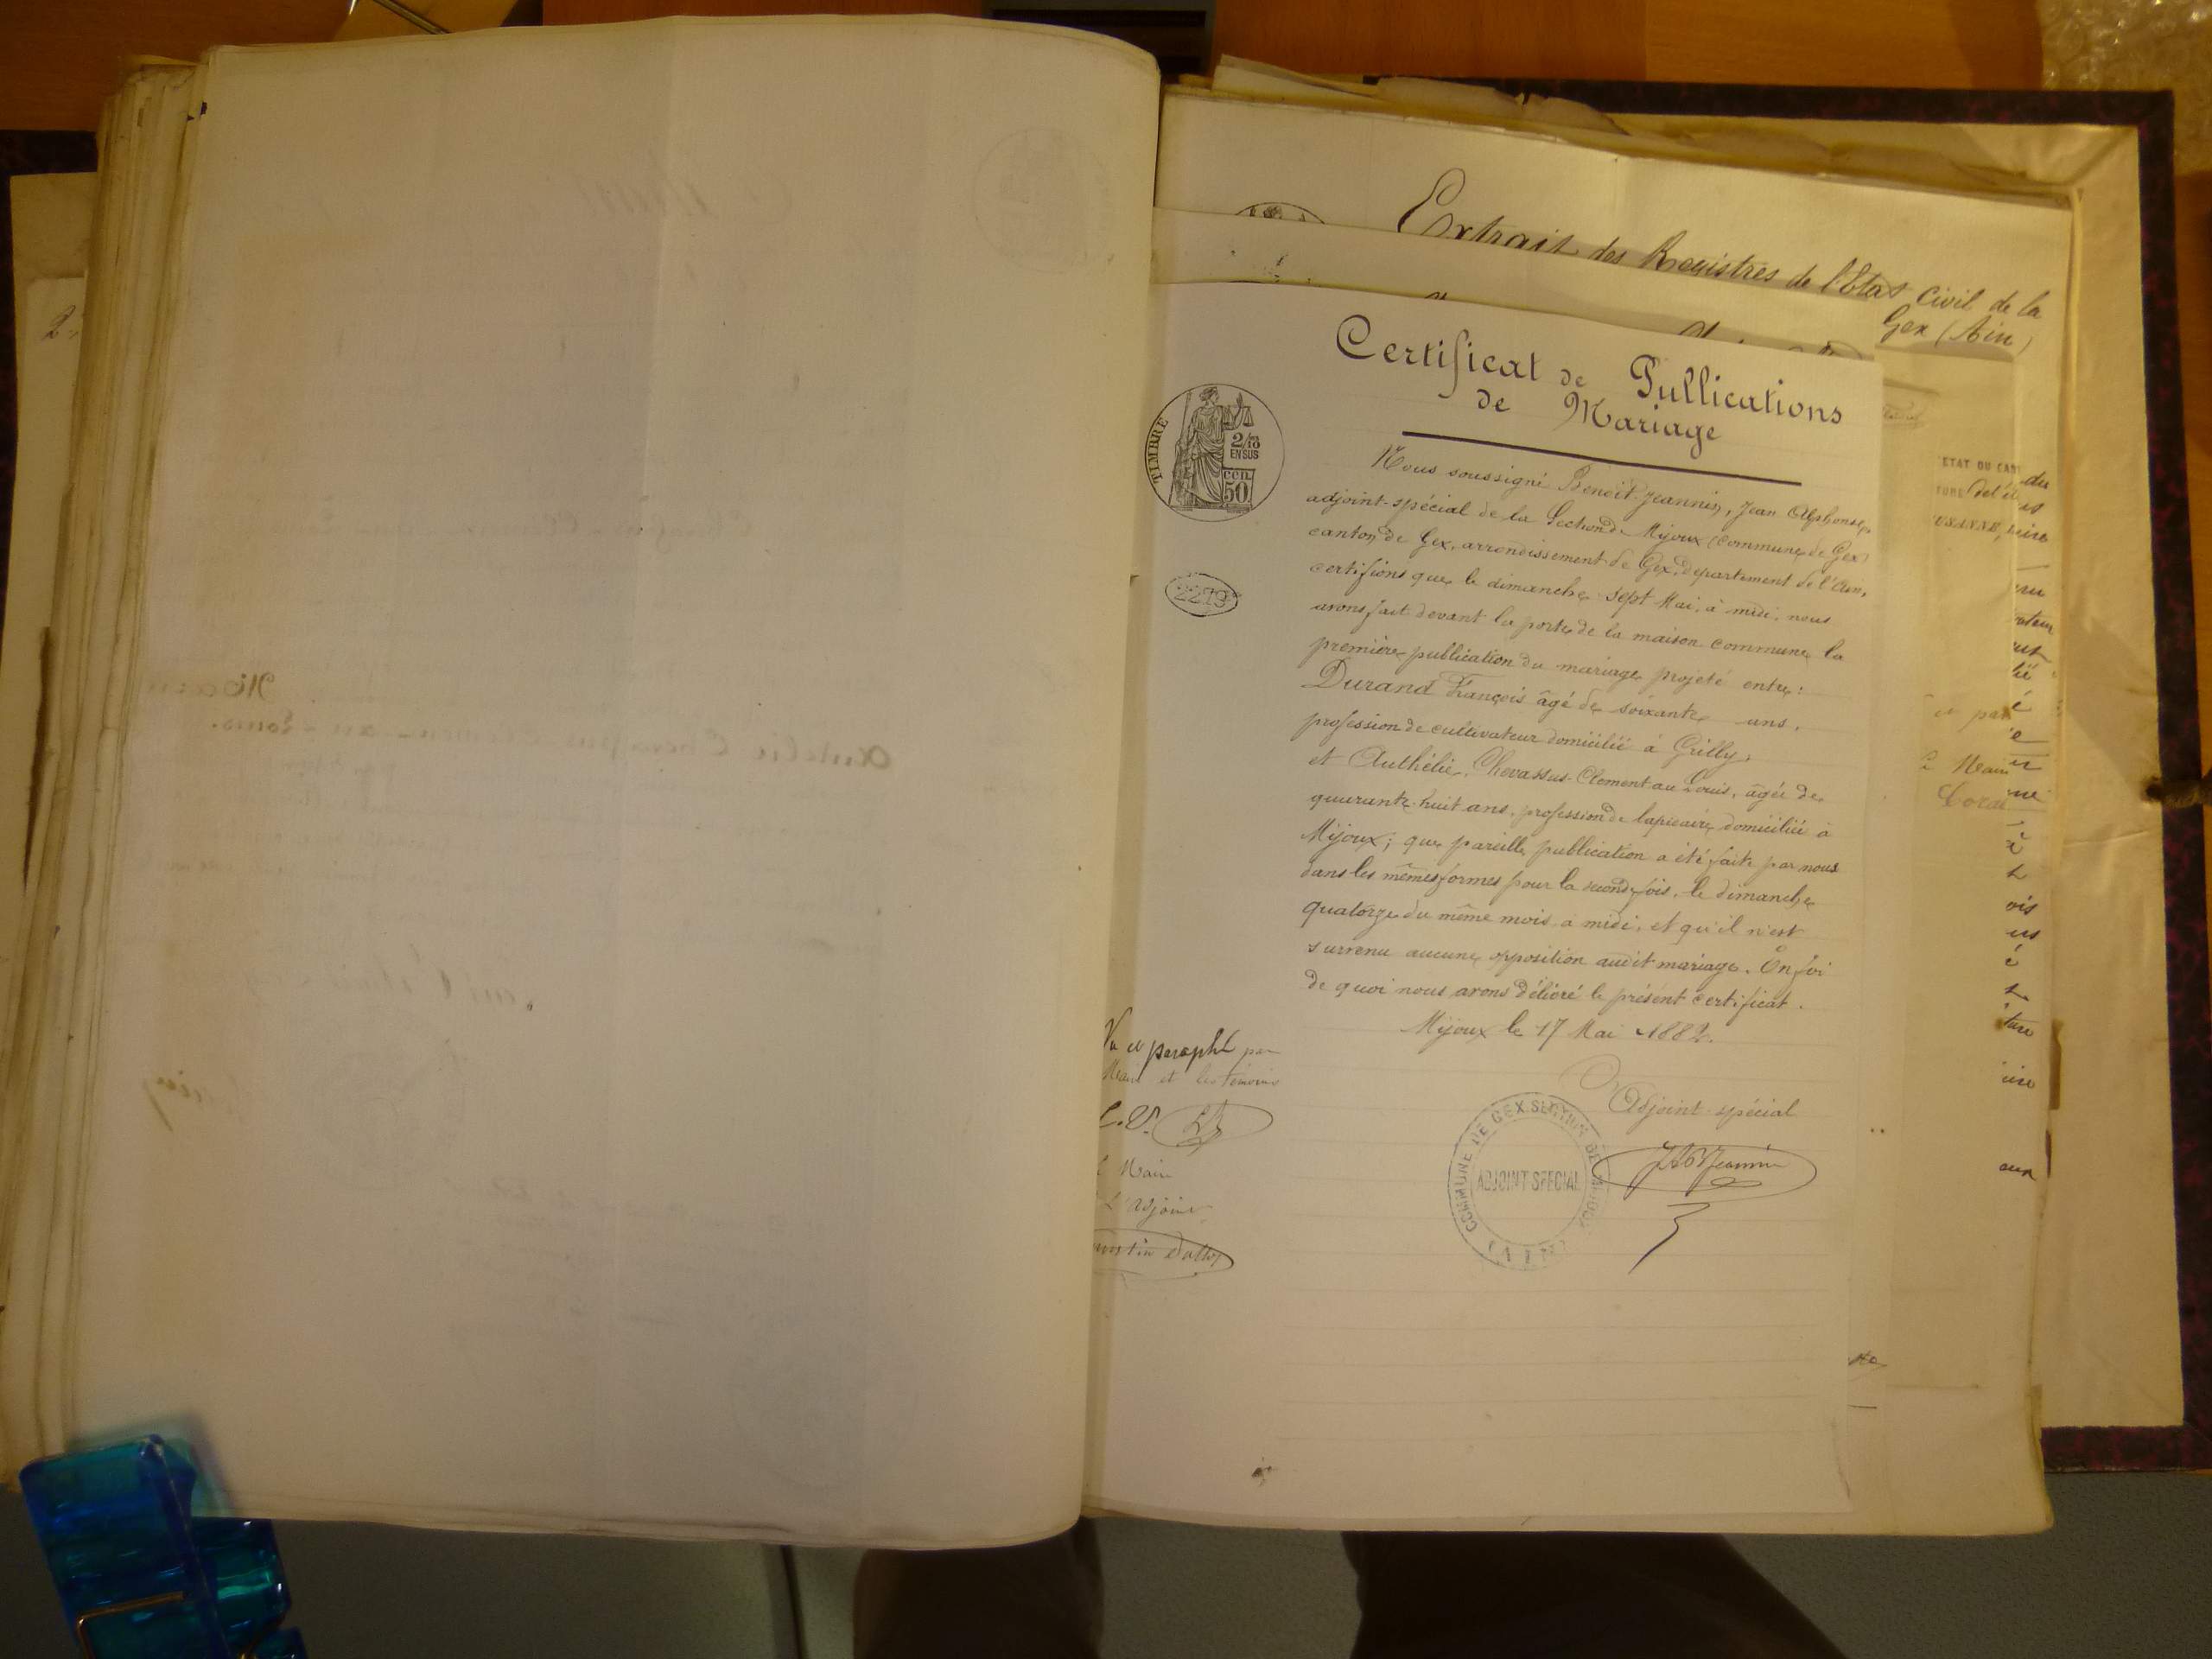 Extrait des Registres de l'Etat Civil de la
Gex (Ain)
Certificat de Publications
de Mariage
TIMBRE
2/10
EN SUS
CEN.
50
2219
Nous soussigné Benoit-Jeannin, Jean Alphonse,
adjoint-spécial de la Section de Mijoux (commune de Gex)
canton de Gex, arrondissement de Gex, département de l'Ain,
certifions que le dimanche sept Mai, à midi, nous
avons fait devant la porte de la maison commune la
première publication du mariage projeté entre :
Durand François âgé de soixante ans,
profession de cultivateur domicilié à Grilly,
et Authélie, Chevassus-Clement au Louis, âgée de
quarante-huit ans, profession de lapidaire domiciliée à
Mijoux ; que pareille publication a été faite par nous
dans les mêmes formes pour la seconde fois, le dimanche
quatorze du même mois à midi, et qu'il n'est
survenu aucune opposition audit mariage. En foi
de quoi nous avons délivré le présent certificat.
Mijoux le 17 Mai 1882.
L'Adjoint-spécial
JA B Jeannin
COMMUNE DE GEX SECTION DE MIJOUX
ADJOINT SPECIAL
(AIN)
Vu et paraphé par
Maire et les témoins
Maire
L'adjoint
ETAT DU CA
USANNE